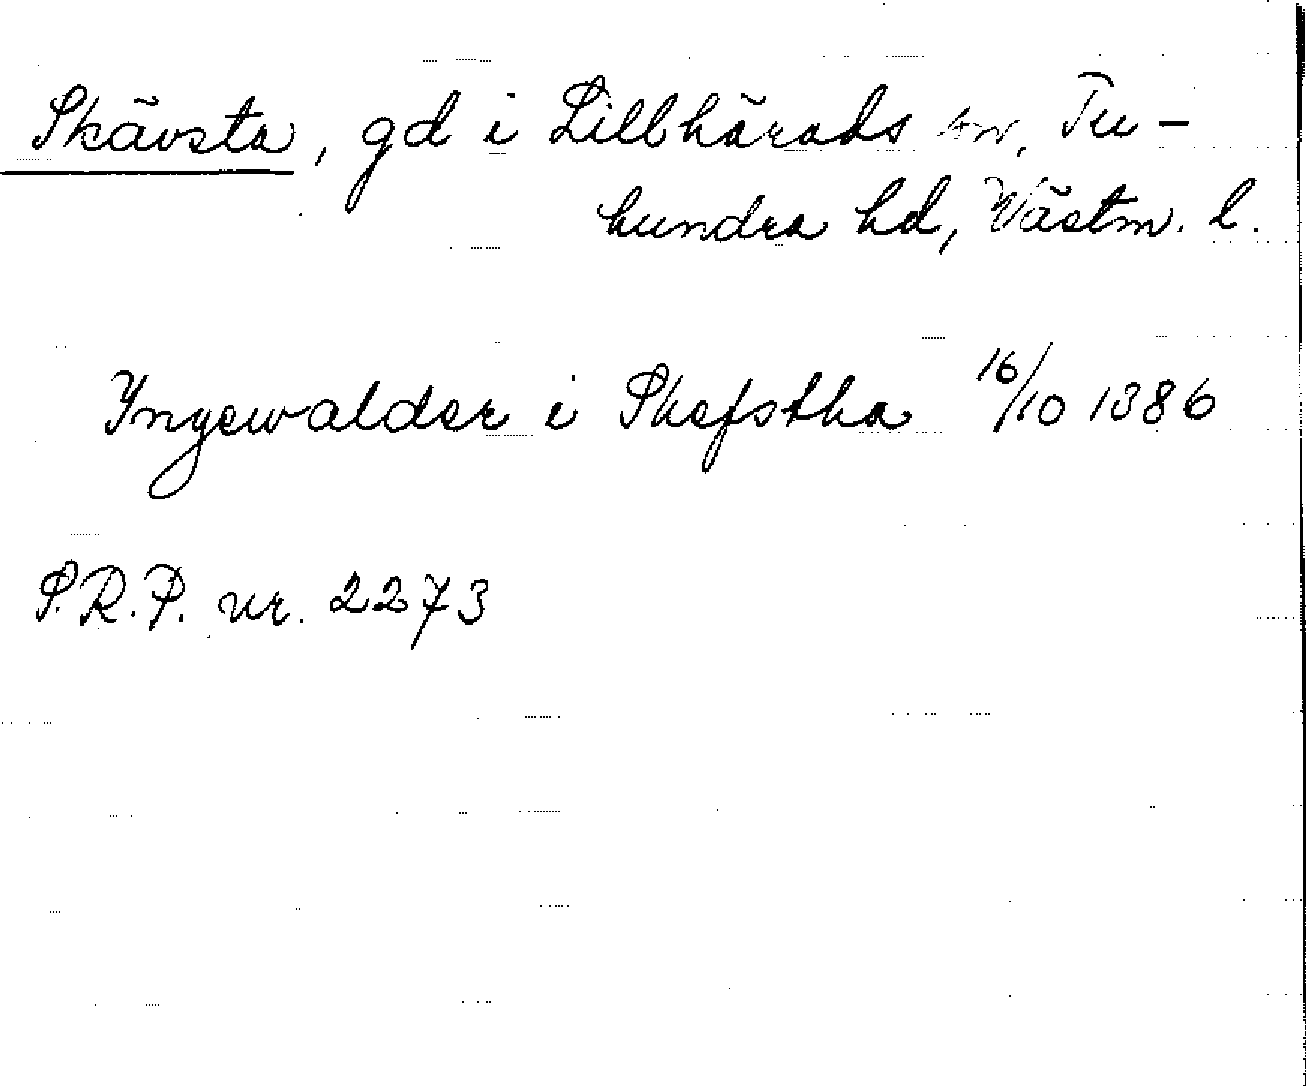 Skävsta, gd i Lillhärads sn, Tu-
hundra hd, Västm. l.
Yngewalder i Skefstha 16/10 1386
S.R.P. nr. 2273